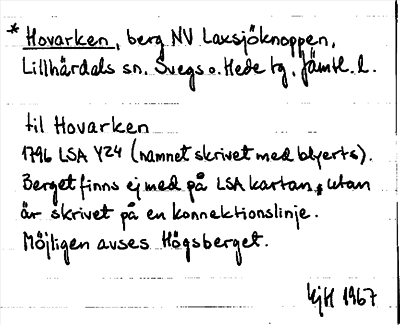 * Hovarken, berg NV Laxsjöknoppen,
Lillhärdals sn. Svegs o. Hede tg. Jämtl. l.
til Hovarken
1796 LSA Y24 (namnet skrivet med blyerts).
Berget finns ej med på LSA kartan, utan
är skrivet på en konnektionslinje.
Möjligen avses Högsberget.
1967